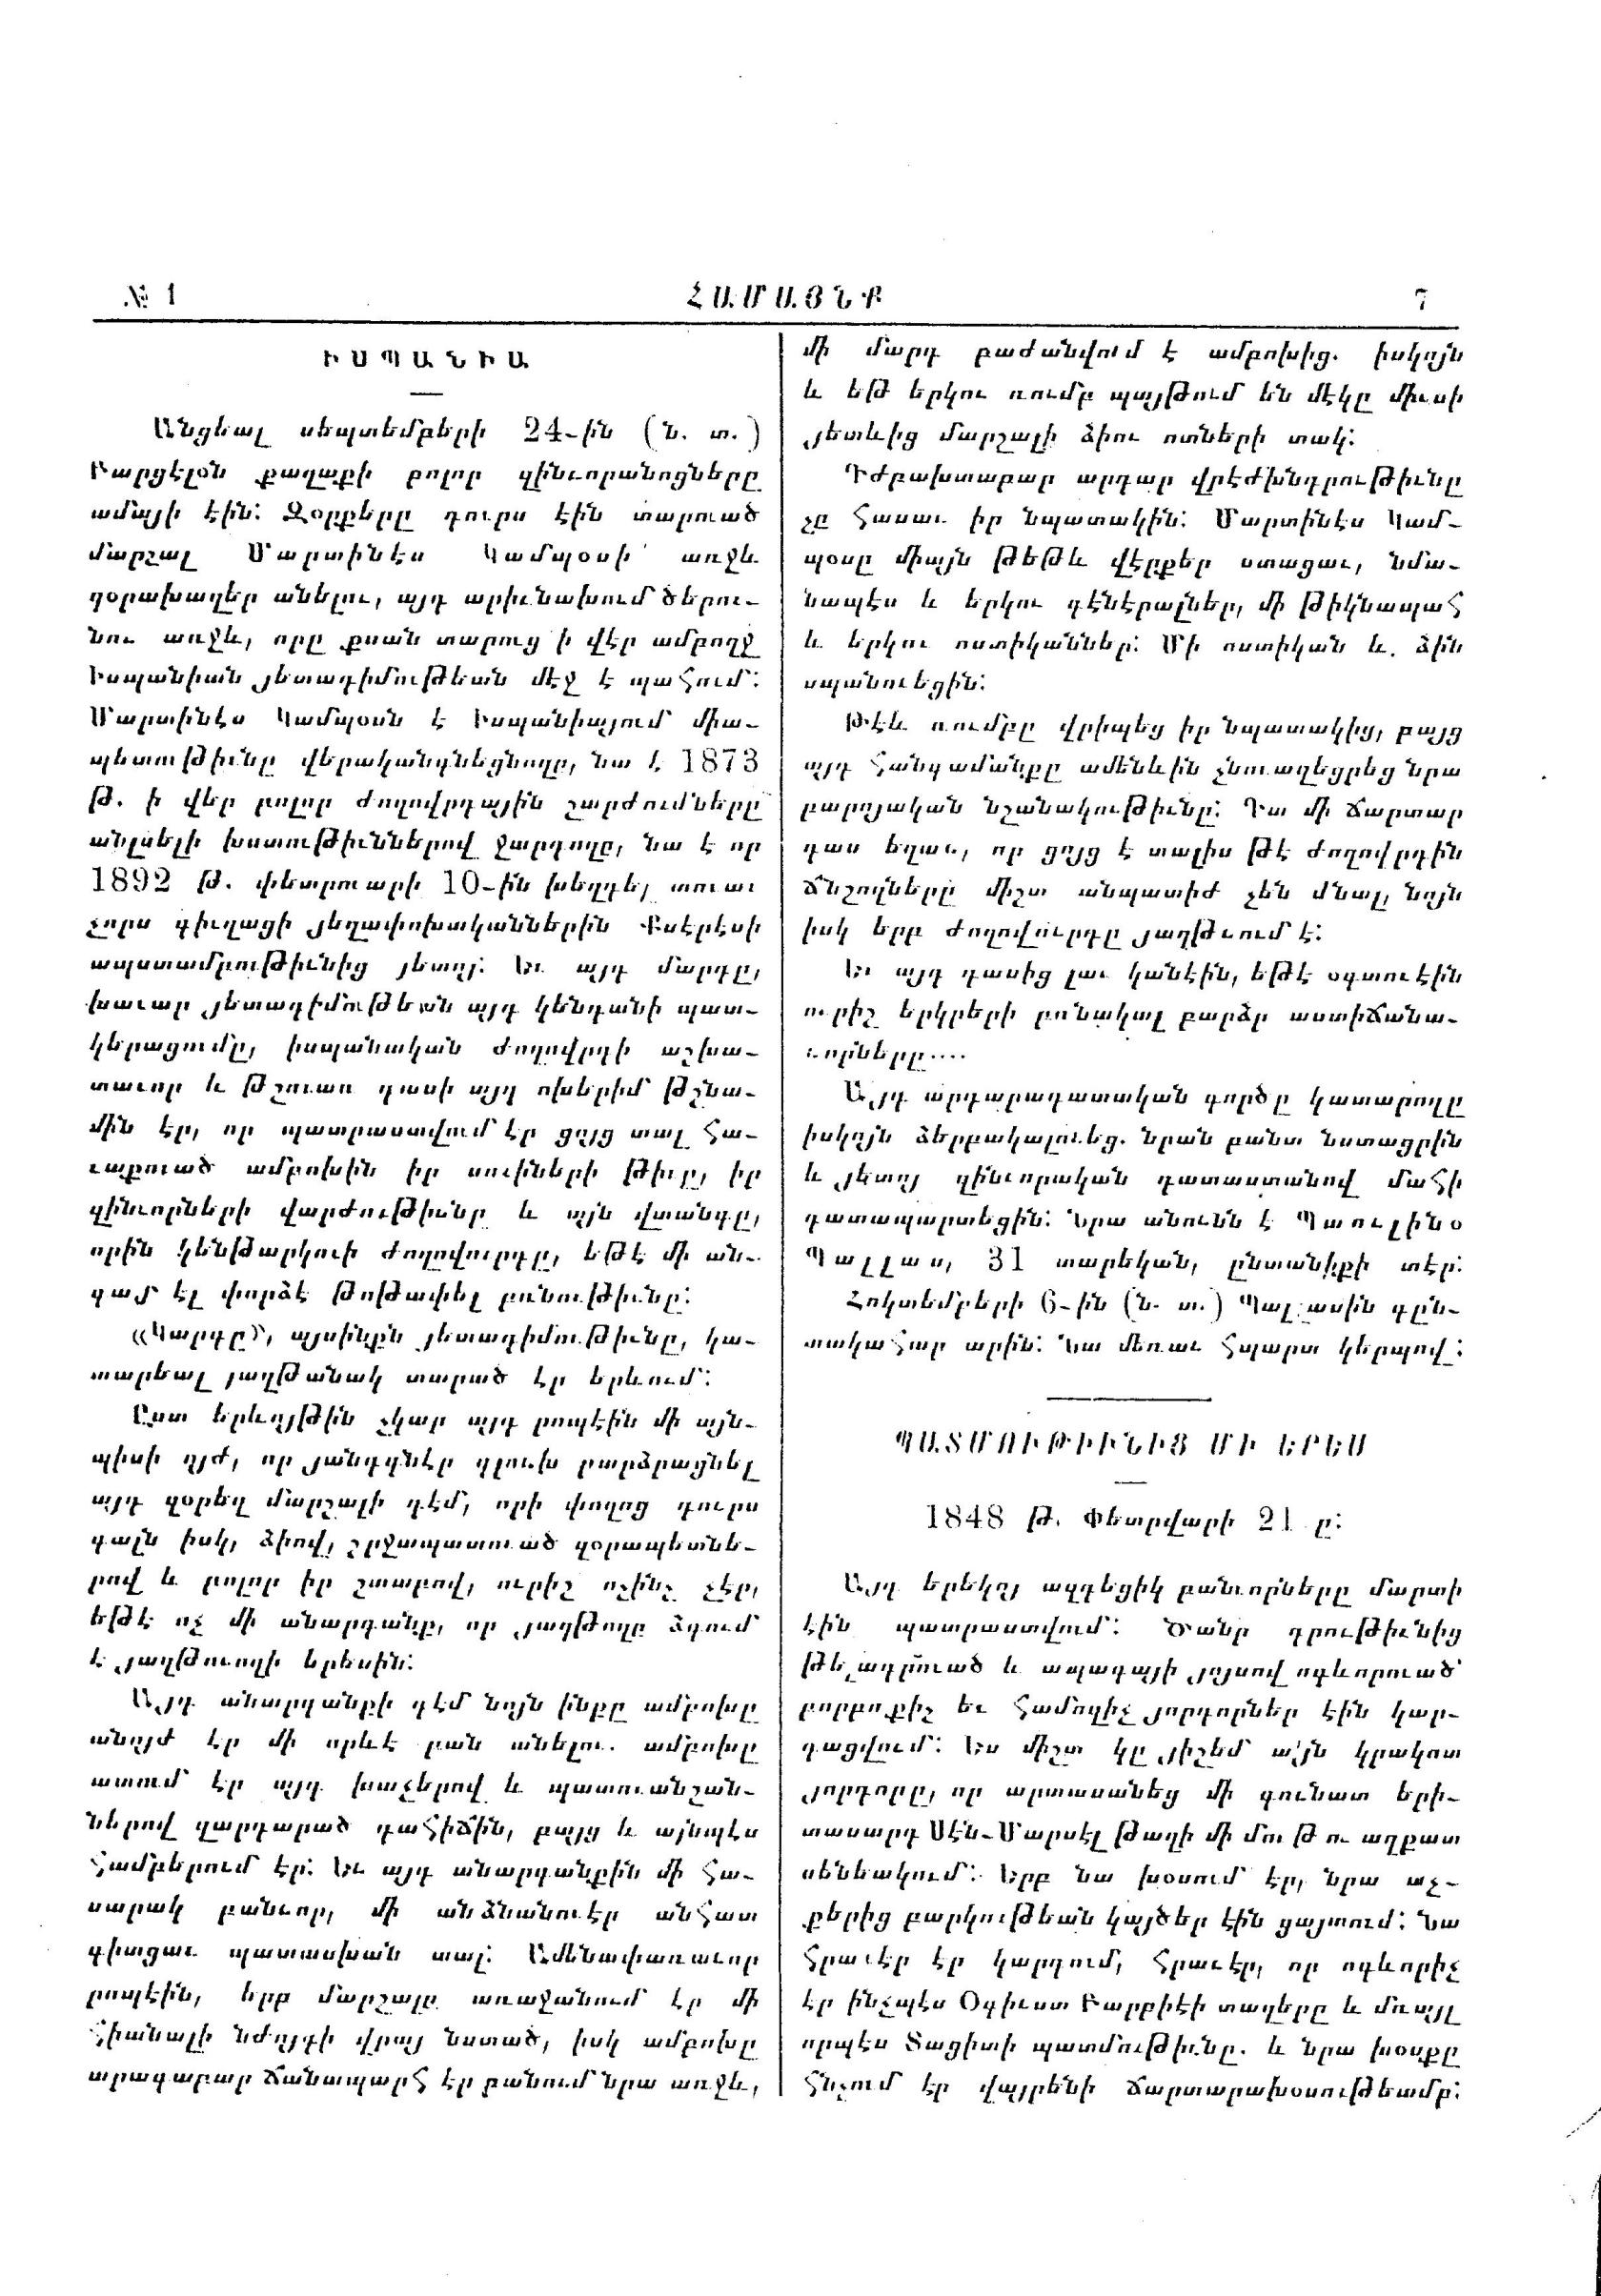 № 1
ՀԱՄԱՅՆՔ
7
ԻՍՊԱՆԻԱ
Անցեալ սեպտեմբերի 24-ին (ն. տ.)
Բարցէլօն քաղաքի բոլոր զինւորանոցները
ամայի էին: Զօրքերը դուրս էին տարուած
մարշալ Մարտինէս Կամպօսի առջև
զօրախաղեր անելու, այդ արիւնախում ծերու-
նու առջև, որը քսան տարուց ի վէր ամբողջ
Իսպանիան յետադիմութեան մէջ է պահում:
Մարտինէս Կամպօսն է Իսպանիայում միա-
պետութիւնը վերականգնեցնողը, նա է 1873
թ. ի վեր բոլոր ժողովրդային շարժումները
անլսելի խստութիւններով ջարդողը, նա է որ
1892 թ. փետրուարի 10-ին խեղդել տուաւ
չորս գիւղացի յեղափոխականներին Քսէրէսի
ապստամբութիւնից յետոյ: Եւ այդ մարդը,
խաւար յետադիմութեան այդ կենդանի պատ-
կերացումը, իսպանական ժողովրդի աշխա-
տաւոր և թշուառ դասի այդ ոխերիմ թշնա-
մին էր, որ պատրաստվում էր ցոյց տալ հա-
ւաքուած ամբոխին իր սուինների թիւը, իր
զինւորների վարժութիւնը և այն վտանգը,
որին կենթարկուի ժողովուրդը, եթէ մի ան-
գամ էլ փորձէ թոթափել բռնութիւնը:
«Կարգը», այսինքն յետադիմութիւնը, կա-
տարեալ յաղթանակ տարած էր երևում:
Ըստ երևոյթին չկար այդ րոպէին մի այն-
պիսի ոյժ, որ յանդգնէր գլուխ բարձրացնել
այդ զօրեղ մարշալի դէմ, որի փողոց դուրս
գալն իսկ, ձիով, շրջապատուած զօրապետնե-
րով և բոլոր իր շտաբով, ուրիշ ոչինչ չէր,
եթէ ոչ մի անարգանք, որ յաղթողը ձգում
է յաղթուողի երեսին:
Այդ անարգանքի դէմ նոյն ինքը ամբոխը
անոյժ էր մի որևէ բան անելու. ամբոխը
ատում էր այդ խաչերով և պատուանշան-
ներով զարդարած դահիճին, բայց և այնպէս
համբերում էր: Եւ այդ անարգանքին մի հա-
սարակ բանւոր, մի անձնանուէր անհատ
գիտցաւ պատասխան տալ: Ամենափառաւոր
րոպէին, երբ մարշալը առաջանում էր մի
հիանալի նժոյգի վրայ նստած, իսկ ամբոխը
արագաբար ճանապարհ էր բանում նրա առջև,
մի մարդ բաժանվում է ամբոխից. իսկոյն
և եթ երկու ռումբ պայթում են մէկը միւսի
յետևից մարշալի ձիու ոտների տակ:
Դժբախտաբար արդար վրէժխնդրութիւնը
չը հասաւ իր նպատակին: Մարտինէս Կամ-
պօսը միայն թեթև վէրքեր ստացաւ, նմա-
նապէս և երկու գէներալներ, մի թիկնապահ
և երկու ոստիկաններ: Մի ոստիկան և ձին
սպանուեցին:
Թէև ռումբը վրիպեց իր նպատակից, բայց
այդ հանգամանքը ամենևին չնուազեցրեց նրա
բարոյական նշանակութիւնը: Դա մի ճարտար
դաս եղաւ, որ ցոյց է տալիս թէ ժողովրդին
ճնշողները միշտ անպատիժ չեն մնալ, նոյն
իսկ երբ ժողովուրդը յաղթւում է:
Եւ այդ դասից լաւ կանէին, եթէ օգտուէին
ուրիշ երկրների բռնակալ բարձր աստիճանա-
ւորները....
Այդ արդարադատական գործը կատարողը
իսկոյն ձերբակալուեց. նրան բանտ նստացրին
և յետոյ զինւորական դատաստանով մահի
դատապարտեցին: Նրա անունն է Պաուլինօ
Պալլաս, 31 տարեկան, ընտանիքի տէր:
Հոկտեմբերի 6-ին (ն. տ.) Պալլասին գըն-
տակահար արին: Նա մեռաւ հպարտ կերպով:
ՊԱՏՄՈՒԹԻՒՆԻՑ ՄԻ ԵՐԵՍ
1848 թ. Փետրվարի 21 ը:
Այդ երեկոյ ազդեցիկ բանւորները մարտի
էին պատրաստվում: Ծանր գրութիւնից
թելադրուած և ապագայի յոյսով ոգևորուած
բորբոքիչ եւ համոզիչ յորդորներ էին կար-
դացվում: Ես միշտ կը յիշեմ ա՛յն կրակոտ
յորդորը, որ արտասանեց մի գունատ երի-
տասարդ Սէն-Մարսէլ թաղի մի մութ ու աղքատ
սենեակում: Երբ նա խօսում էր, նրա աչ-
քերից բարկութեան կայծեր էին ցայտում: Նա
հրաւէր էր կարդում, հրաւէր, որ ոգևորիչ
էր ինչպէս Օգիւստ Բարբիէի տաղերը և մռայլ
որպէս Տացիտի պատմութիւնը. և նրա խօսքը
հնչում էր վայրենի ճարտարախօսութեամբ: